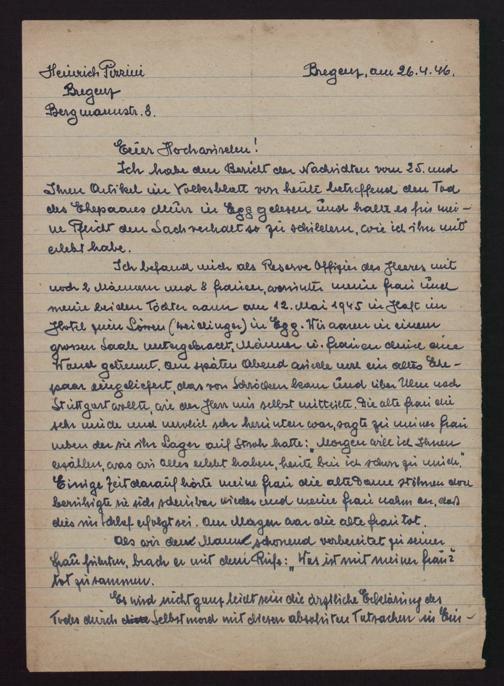 Heinrich Pirzini Bregenz, am 26.4.46.
Bregenz
Bergmannstr. 8.
Euer Hochwürden!
Ich habe den Bericht der Nachrichten vom 25. und
Ihren Artikel im Volksblatt von heute betreffend den Tod
des Ehepaares in Egg gelesen und halte es für mei-
ne Pflicht den Sachverhalt so zu schildern, wie ich ihn mit
erlebt habe.
Ich befand mich als Reserve Offizier des Heeres mit
noch 2 Männern und 8 Frauen, worunter meine Frau und
meine beiden Töchter waren am 12. Mai 1945 in Haft im
Hotel zum Löwen in Egg. Wir waren in einem
grossen Saale untergebracht, Männer u. Frauen durch eine
Wand getrennt. Am späten Abend wurde ein altes Ehe-
paar eingeliefert, das von Schröcken kam und über Ulm nach
Stuttgart wollte, wie der Herr mir selbst mitteilte. Die alte Frau die
sehr müde und herunten war, sagte zu meiner Frau
neben der sie ihr Lager auf Stroh hatte: „Morgen will ich Ihnen
erzählen, was wir alles erlebt haben, heute bin ich schon zu müde."
Einige Zeit darauf hörte meine Frau die alte Dame stöhnen doch
beruhigte sie sich scheinbar wieder und meine Frau nahm an, daß
dies im Schlaf erfolgt sei. Am Morgen war die alte Frau tot.
Als wir den Mann schonend vorbereitet zu seiner
Frau führten, brach er mit dem Rufe: „Was ist mit meiner Frau"
tot zusammen.
Es wird nicht ganz leicht sein die ärztliche Erklärung des
Todes durch Selbstmord mit diesen absoluten Tatsachen in Ein-